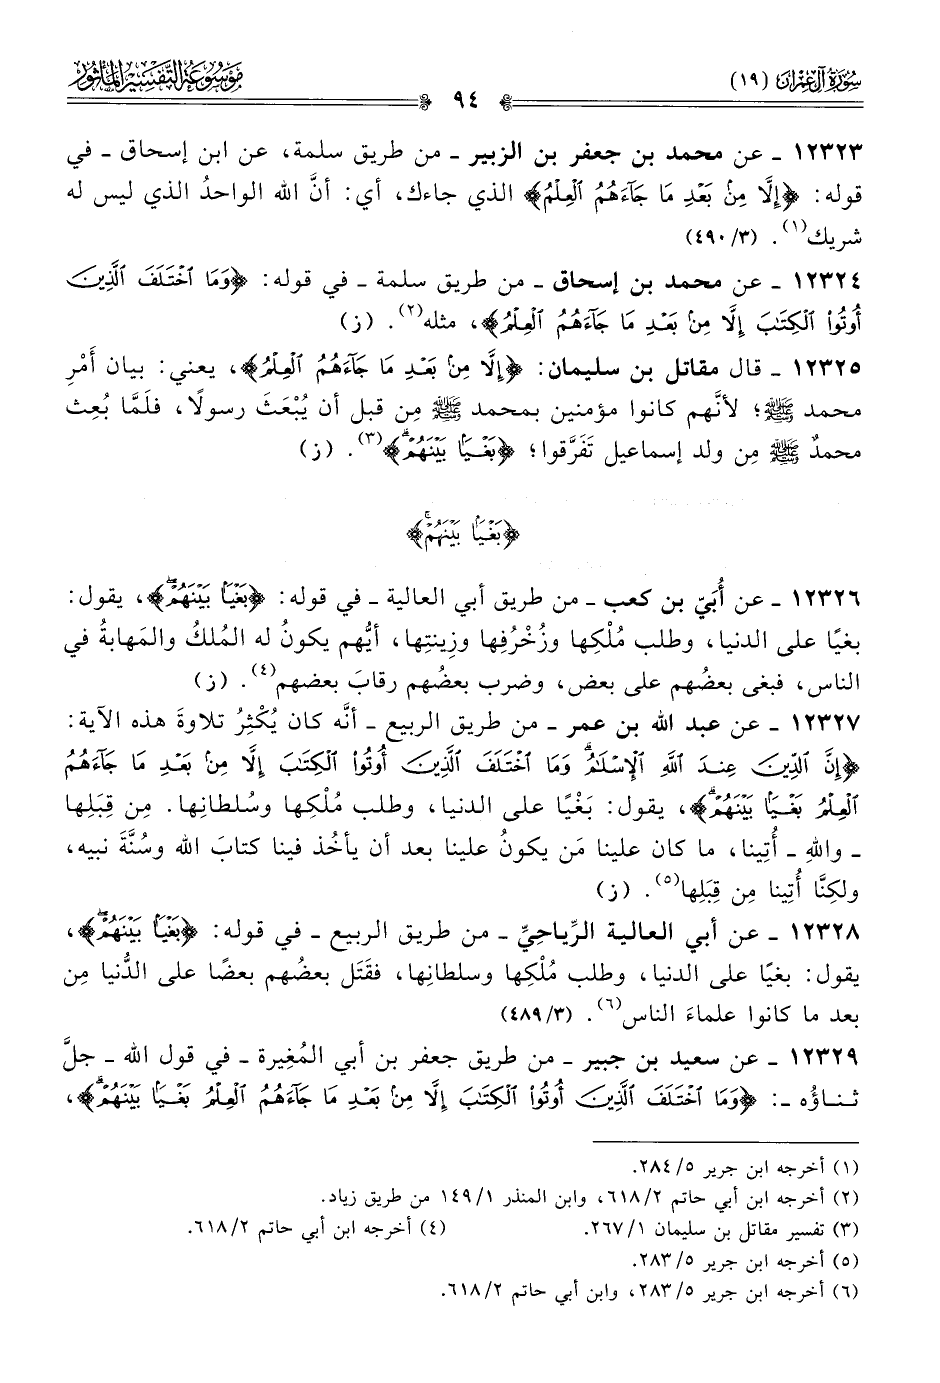 سورة آل عمران (١٩)
٩٤
موسوعة التفسير المأثور
١٢٣٢٣ ـ عن محمد بن جعفر بن الزبير ـ من طريق سلمة، عن ابن إسحاق ـ في
قوله: ﴿إِلَّا مِنۢ بَعْدِ مَا جَآءَهُمُ ٱلْعِلْمُ﴾ الذي جاءك، أي: أنَّ الله الواحدُ الذي ليس له
شريك(١). (٣/ ٤٩٠)
١٢٣٢٤ ـ عن محمد بن إسحاق ـ من طريق سلمة ـ في قوله: ﴿وَمَا ٱخْتَلَفَ ٱلَّذِينَ
أُوتُوا۟ ٱلْكِتَٰبَ إِلَّا مِنۢ بَعْدِ مَا جَآءَهُمُ ٱلْعِلْمُ﴾، مثله(٢). (ز)
١٢٣٢٥ ـ قال مقاتل بن سليمان: ﴿إِلَّا مِنۢ بَعْدِ مَا جَآءَهُمُ ٱلْعِلْمُ﴾، يعني: بيان أَمْرِ
محمد ﷺ؛ لأنَّهم كانوا مؤمنين بمحمد ﷺ مِن قبل أن يُبْعَثَ رسولًا، فلَمَّا بُعِث
محمدٌ ﷺ مِن ولد إسماعيل تَفَرَّقوا؛ ﴿بَغْيًۢا بَيْنَهُمْ ۗ﴾(٣). (ز)
﴿بَغْيًۢا بَيْنَهُمْ ۚ﴾
١٢٣٢٦ ـ عن أُبَيّ بن كعب ـ من طريق أبي العالية ـ في قوله: ﴿بَغْيًۢا بَيْنَهُمْ ۖ﴾، يقول:
بغيًا على الدنيا، وطلب مُلْكِها وزُخْرُفِها وزِينتِها، أيُّهم يكونُ له المُلكُ والمَهابةُ في
الناس، فبغى بعضُهم على بعض، وضرب بعضُهم رقابَ بعضهم(٤). (ز)
١٢٣٢٧ ـ عن عبد الله بن عمر ـ من طريق الربيع ـ أنَّه كان يُكْثِرُ تلاوةَ هذه الآية:
﴿إِنَّ ٱلدِّينَ عِندَ ٱللَّهِ ٱلْإِسْلَٰمُ ۗ وَمَا ٱخْتَلَفَ ٱلَّذِينَ أُوتُوا۟ ٱلْكِتَٰبَ إِلَّا مِنۢ بَعْدِ مَا جَآءَهُمُ
ٱلْعِلْمُ بَغْيًۢا بَيْنَهُمْ ۗ﴾، يقول: بَغْيًا على الدنيا، وطلب مُلْكِها وسُلطانِها. مِن قِبَلِها
ـ واللهِ ـ أُتِينا، ما كان علينا مَن يكونُ علينا بعد أن يأخُذ فينا كتابَ الله وسُنَّةَ نبيه،
ولكِنَّا أُتِينا مِن قِبَلِها(٥). (ز)
١٢٣٢٨ ـ عن أبي العالية الرِّياحِيِّ ـ من طريق الربيع ـ في قوله: ﴿بَغْيًۢا بَيْنَهُمْ ۖ﴾،
يقول: بغيًا على الدنيا، وطلب مُلْكِها وسلطانِها، فقَتَل بعضُهم بعضًا على الدُّنيا مِن
بعد ما كانوا علماءَ الناس(٦). (٣/ ٤٨٩)
١٢٣٢٩ ـ عن سعيد بن جبير ـ من طريق جعفر بن أبي المُغِيرة ـ في قول الله ـ جلَّ
ثناؤُه ـ: ﴿وَمَا ٱخْتَلَفَ ٱلَّذِينَ أُوتُوا۟ ٱلْكِتَٰبَ إِلَّا مِنۢ بَعْدِ مَا جَآءَهُمُ ٱلْعِلْمُ بَغْيًۢا بَيْنَهُمْ ۗ﴾،
(١) أخرجه ابن جرير ٥/ ٢٨٤.
(٢) أخرجه ابن أبي حاتم ٢/ ٦١٨، وابن المنذر ١/ ١٤٩ من طريق زياد.
(٣) تفسير مقاتل بن سليمان ١/ ٢٦٧. (٤) أخرجه ابن أبي حاتم ٢/ ٦١٨.
(٥) أخرجه ابن جرير ٥/ ٢٨٣.
(٦) أخرجه ابن جرير ٥/ ٢٨٣، وابن أبي حاتم ٢/ ٦١٨.